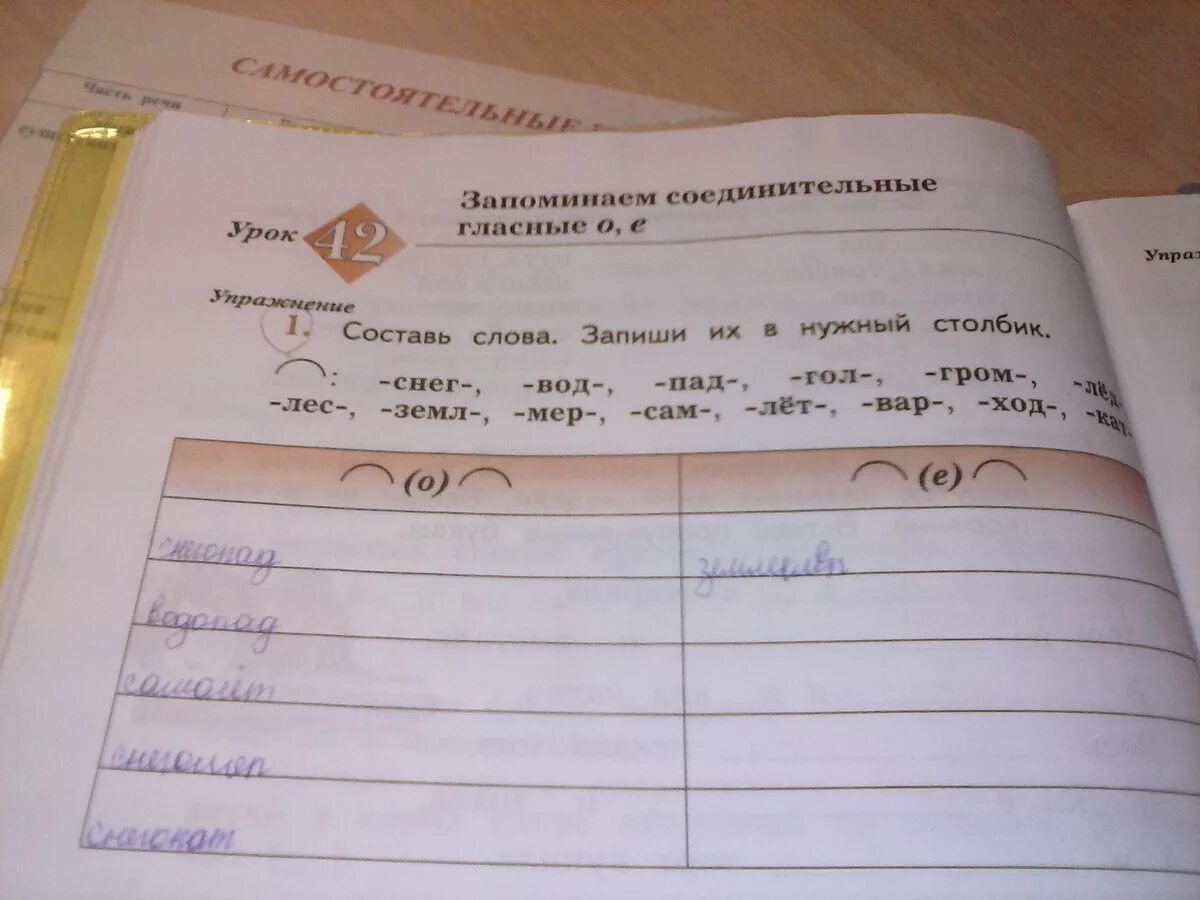 САМОСТОЯТЕЛЬНЫЕ
Часть речи
Урок 42
Запоминаем соединительные
гласные о, е
Упражнение
1. Составь слова. Запиши их в нужный столбик.
: -снег-, -вод-, -пад-, -гол-, -гром-, -лёд-
-лес-, -земл-, -мер-, -сам-, -лёт-, -вар-, -ход-, -кат-
(о) (е)
снегопад землемер
водопад
самолёт
снегомер
снегокат
Упраж